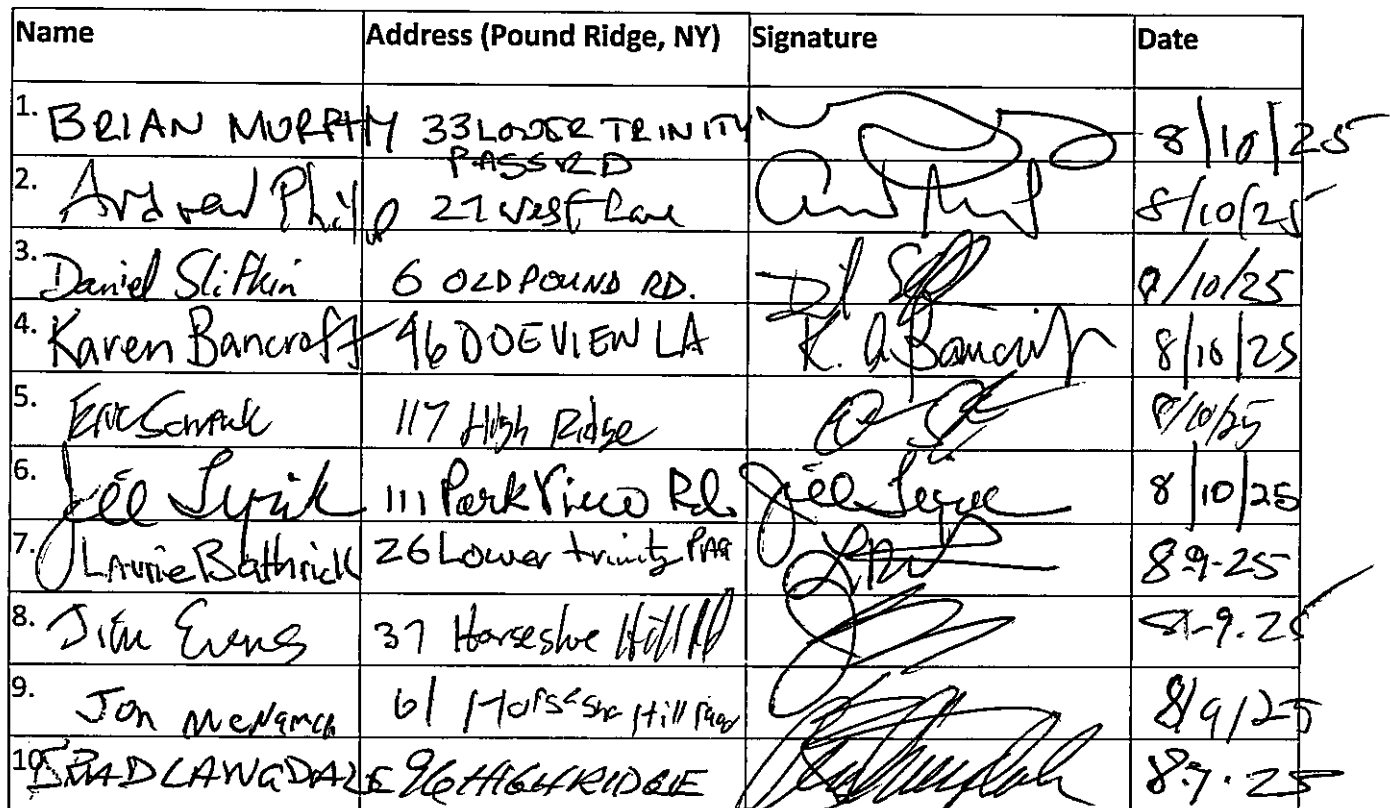 Name Address (Pound Ridge, NY) Signature Date
1. BRIAN MURPHY 33 LOWER TRINITY PASS RD 8/10/25
2. Andrew Philip 27 West Lane 8/10/25
3. Daniel Slifkin 6 OLD POUND RD. 8/10/25
4. Karen Bancroft 46 DOEVIEW LA K. A Bancroft 8/10/25
5. Eric 117 High Ridge 8/10/25
6. 111 Park View Rd. 8/10/25
7. Laurie Bathrick 26 Lower trinity Pass 8-9-25
8. Jim Evans 37 Horseshoe Hill Rd 8-9-25
9. Jon McNamara 61 Horseshoe Hill Road 8/9/25
10. BRAD LANGDALE 96 HIGH RIDGE 8.9.25